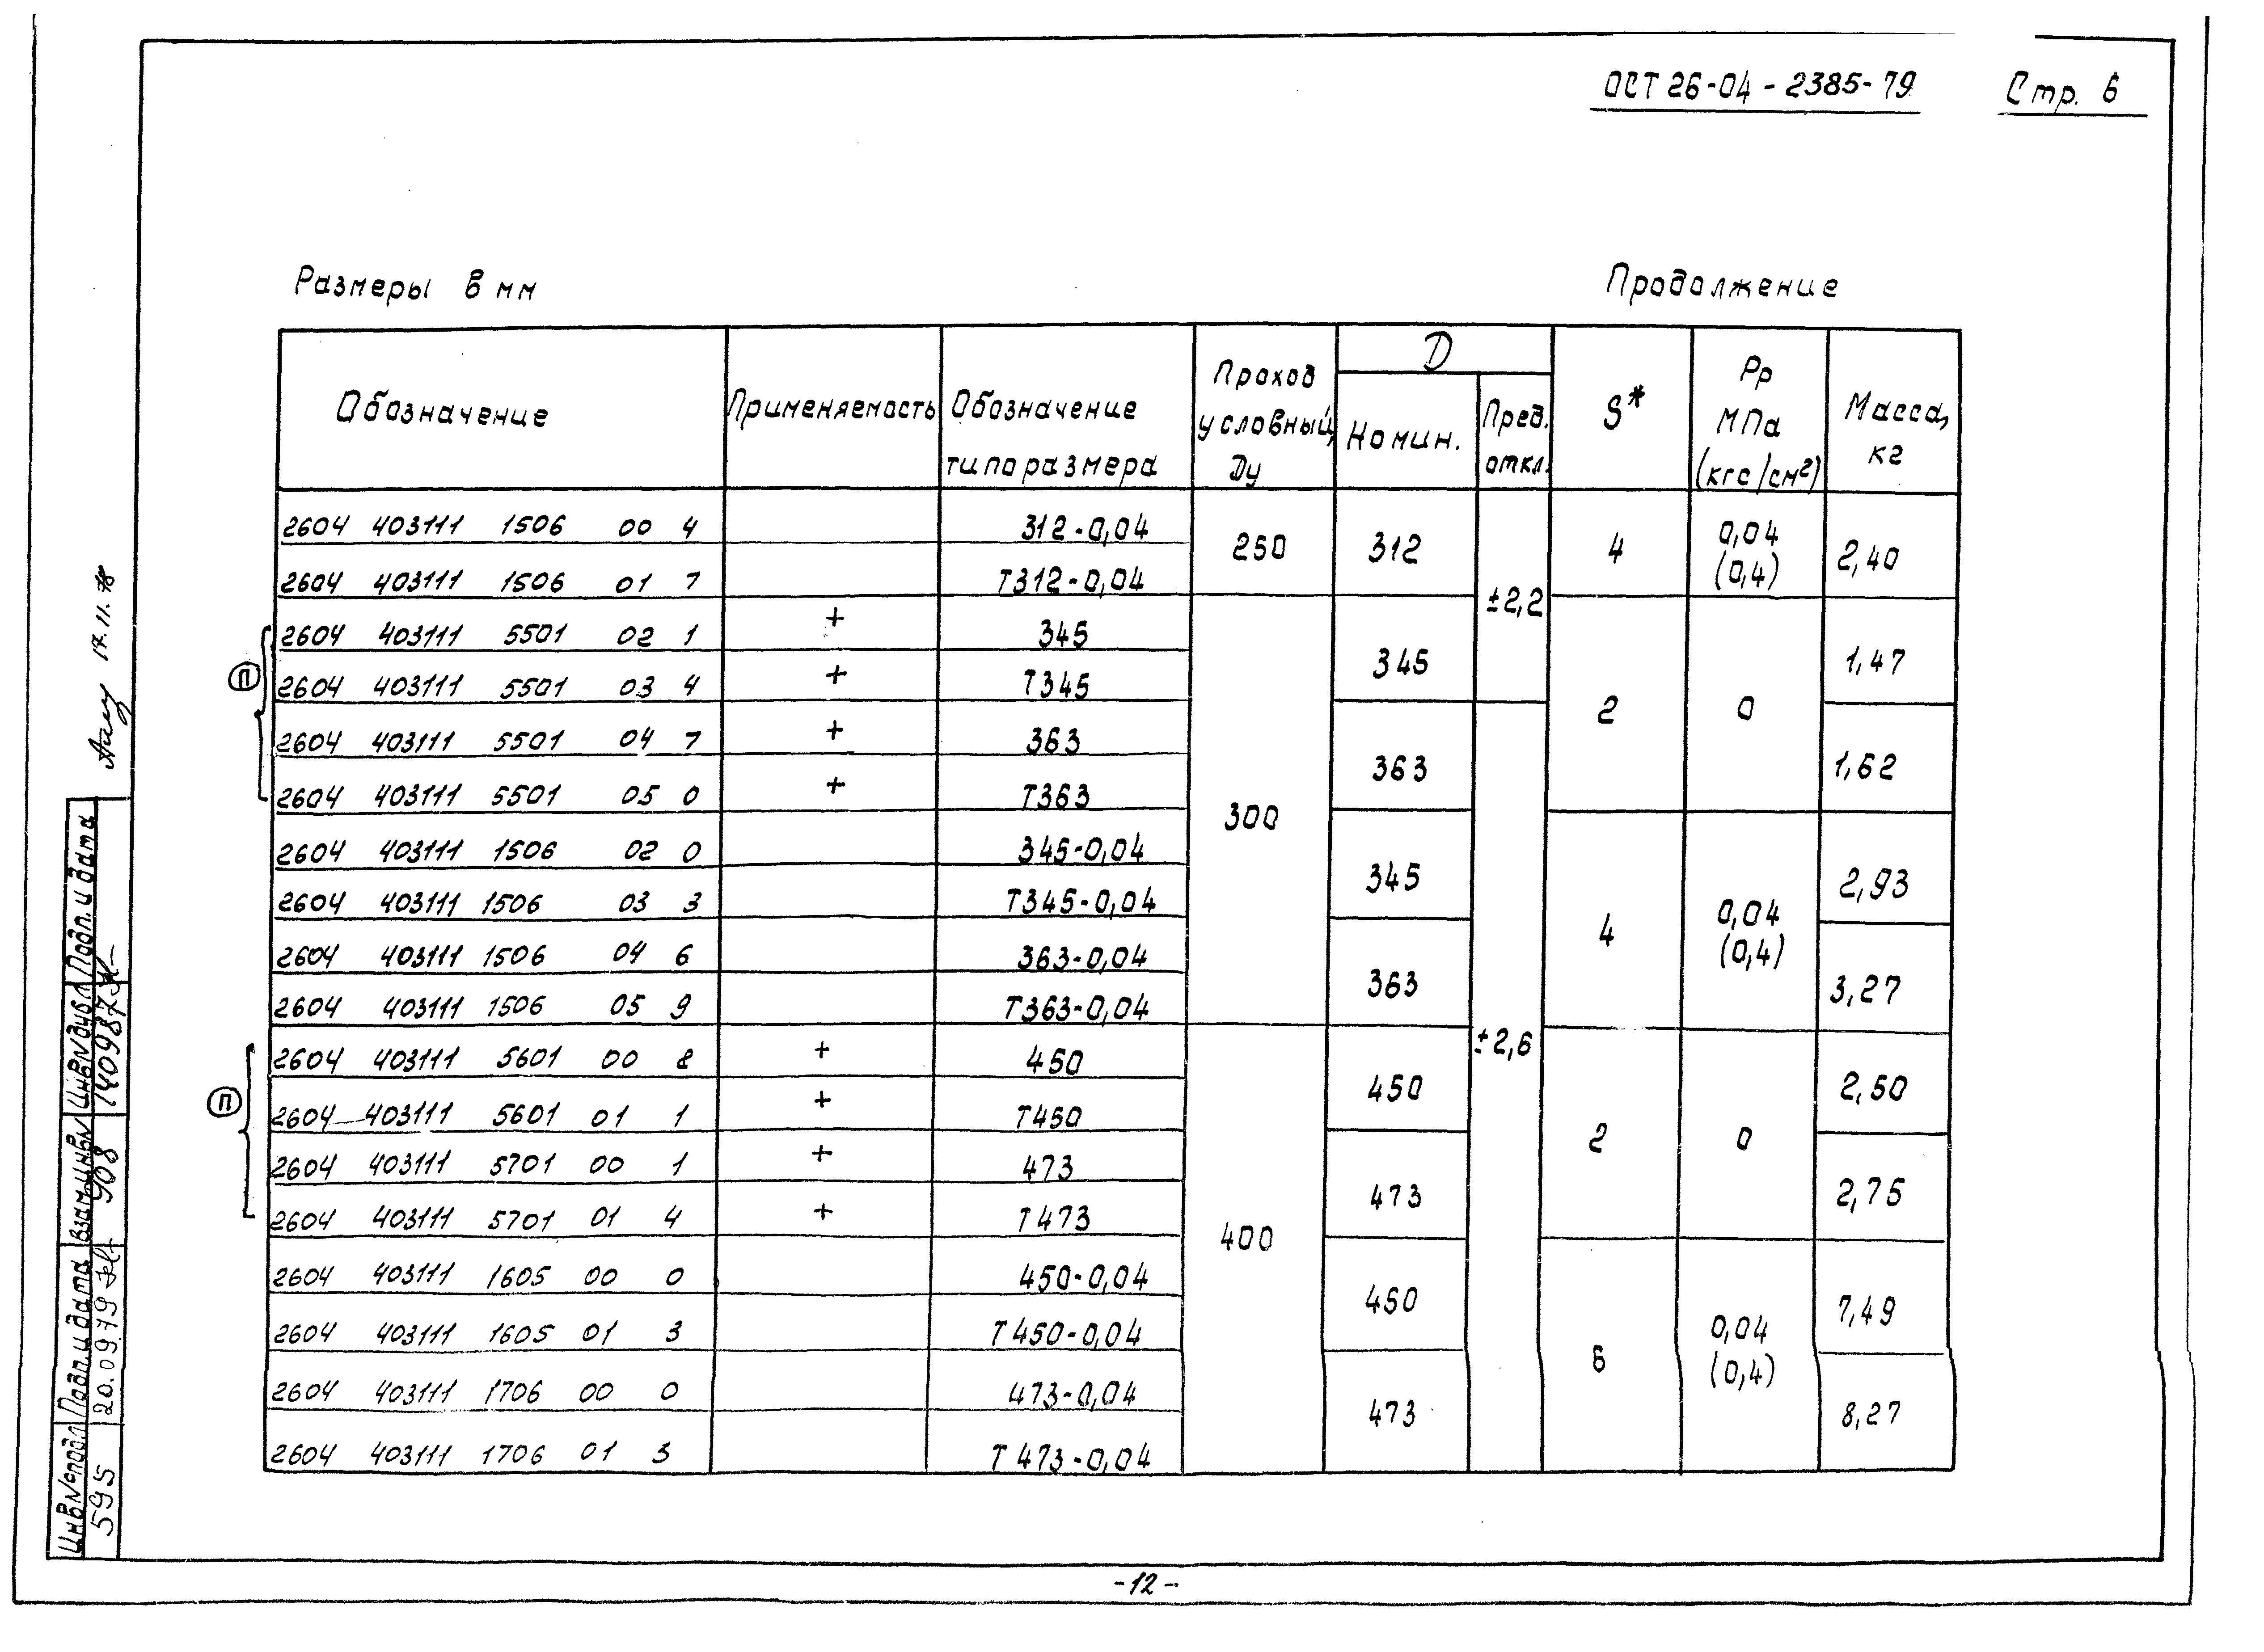 ОСТ 26-04-2385-79 Стр. 6
Размеры в мм Продолжение
Обозначение
Применяемость
Обозначение
типоразмера
Проход
условный,
Ду
D
Номин.
Пред.
откл.
S*
Рр
МПа
(кгс/см²)
Масса,
кг
2604 403111 1506 00 4 312-0,04 250 312 ±2,2 4 0,04 (0,4) 2,40
2604 403111 1506 01 7 Т312-0,04
2604 403111 5501 02 1 + 345 300 345 2 0 1,47
2604 403111 5501 03 4 + Т345
2604 403111 5501 04 7 + 363 363 1,62
2604 403111 5501 05 0 + Т363
2604 403111 1506 02 0 345-0,04 345 4 0,04 (0,4) 2,93
2604 403111 1506 03 3 Т345-0,04
2604 403111 1506 04 6 363-0,04 363 3,27
2604 403111 1506 05 9 Т363-0,04
2604 403111 5601 00 8 + 450 400 450 ±2,6 2 0 2,50
2604 403111 5601 01 1 + Т450
2604 403111 5701 00 1 + 473 473 2,75
2604 403111 5701 01 4 + Т473
2604 403111 1605 00 0 450-0,04 450 6 0,04 (0,4) 7,49
2604 403111 1605 01 3 Т450-0,04
2604 403111 1706 00 0 473-0,04 473 8,27
2604 403111 1706 01 3 Т473-0,04
П
П
17.11.78
Подп. и дата
Инв№дубл
140987
Взам.инв№
908
Подп. и дата
20.09.79
Инв№подл
595
-12-